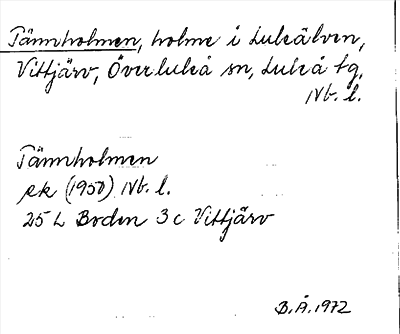 Tännholmen, holme i Luleälven,
Vittjärv, Överluleå sn, Luleå tg,
Nb. l.
Tännholmen
ek (1950) Nb. l.
25 L Boden 3 c Vittjärv
B.Å. 1972